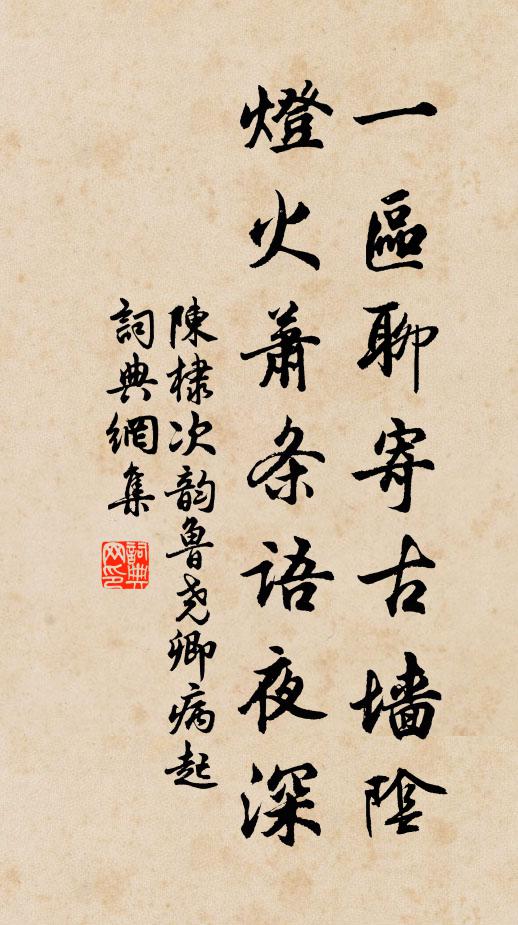 一區聊寄古墙陰
燈火蕭条语夜深
陳棣次韵魯尧卿病起
詞典網集
詞典网印